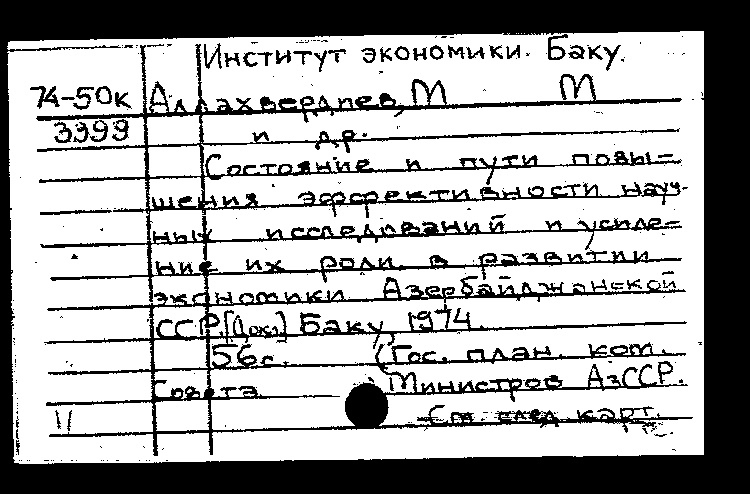 Институт экономики. Баку.
74-50к Аллахвердиев, М М
3399 и др.
Состояние и пути повы-
шения эффективности науч-
ных исследований и усиле-
ние их роли в развитии
экономики Азербайджанской
ССР. [Докл.] Баку, 1974.
56с. (Гос. план. ком.
Совета Министров АзССР.
11 См. след. карт.